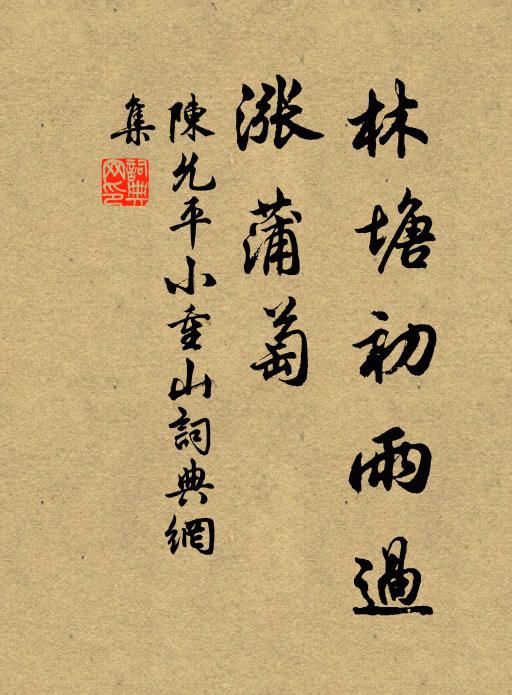 林塘初雨過
漲蒲萄
陳允平小重山詞典網
集
詞典
网印